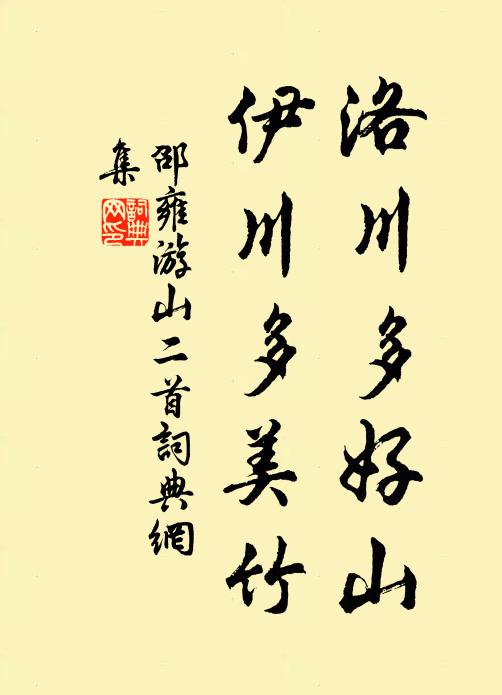 洛川多好山
伊川多美竹
邵雍游山二首詞典網
集
詞典
网印